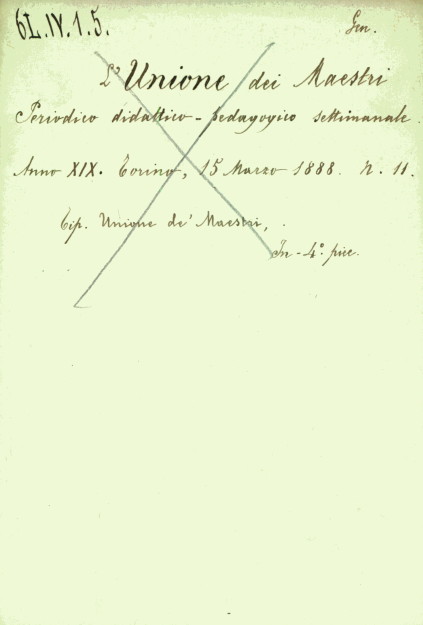 6L.IV.1.5.
Gen.
L'Unione dei Maestri
Periodico didattico-pedagogico settimanale.
Anno XIX. Torino, 15 Marzo 1888. n. 11.
Tip. Unione de' Maestri, .
In-4° picc.